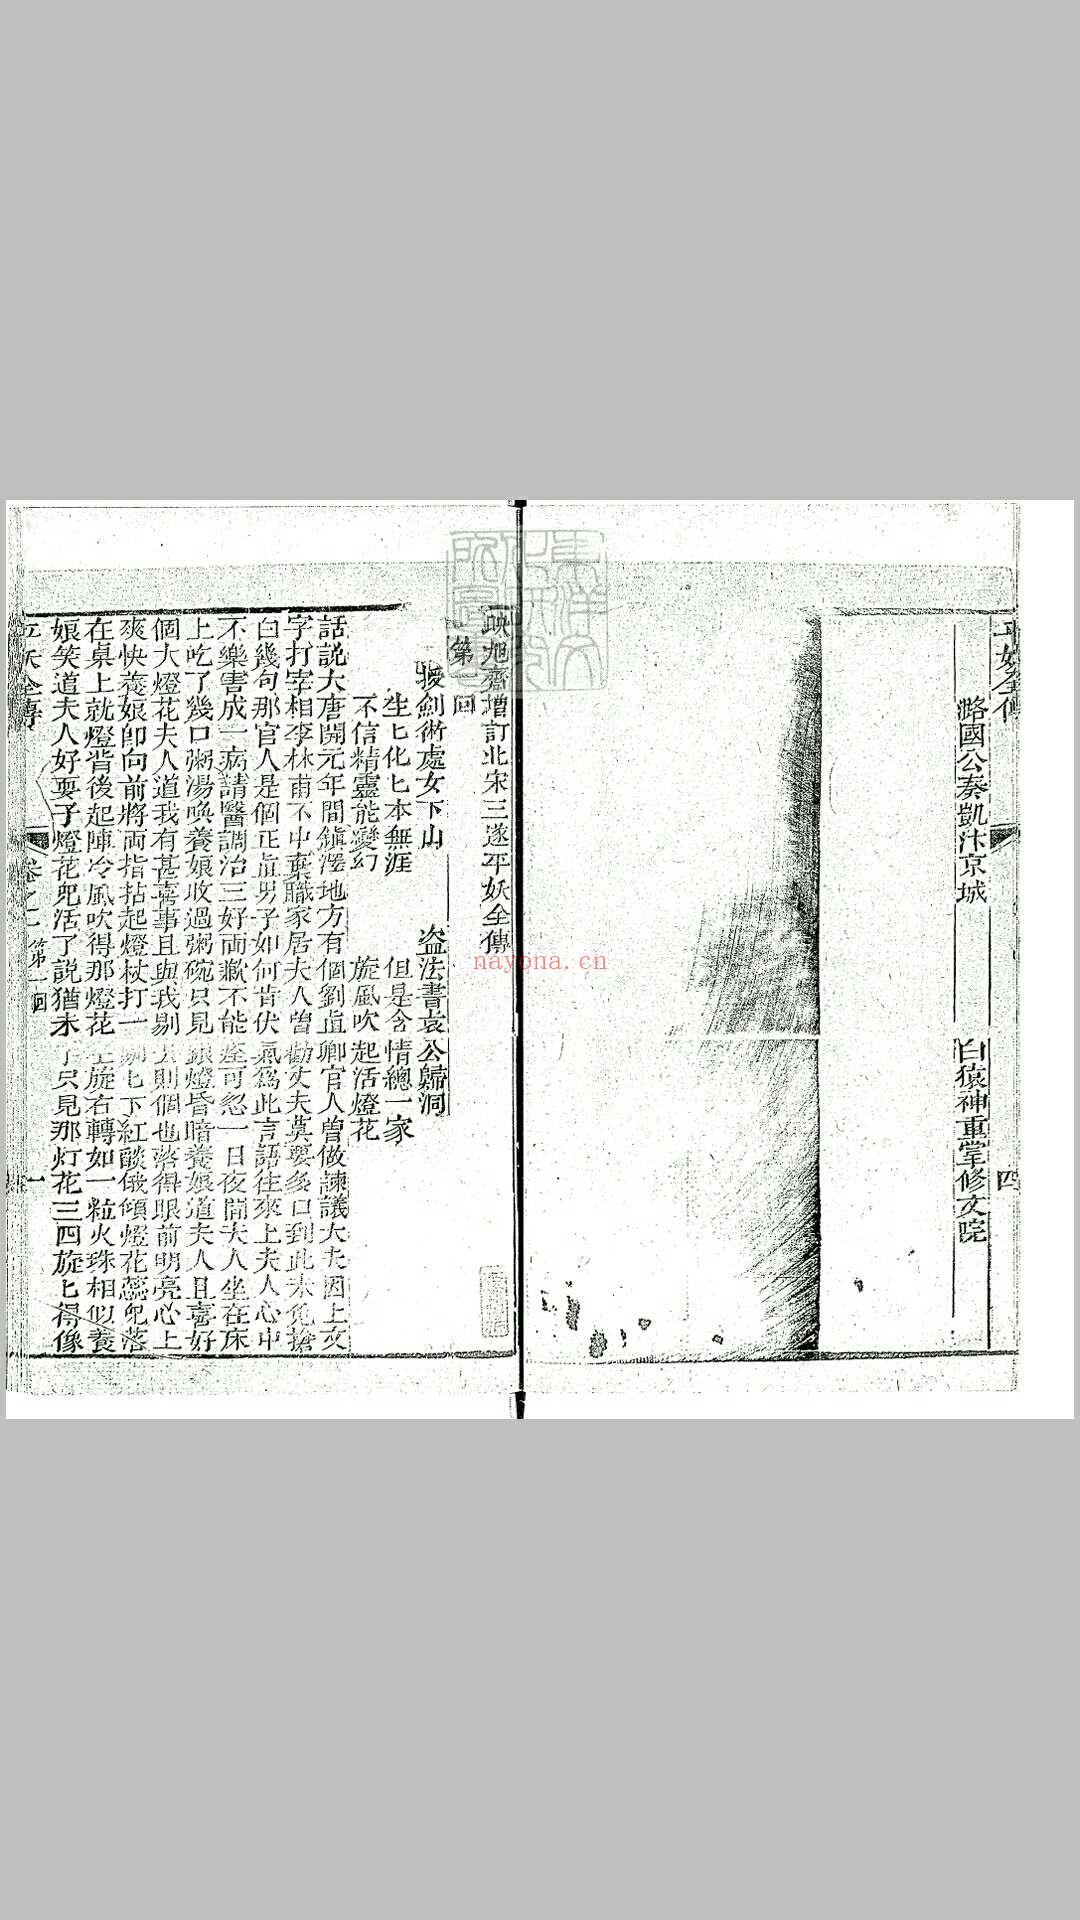 平妖全傳
潞國公奏凱汴京城　白猿神重掌修文院
四
映旭齋增訂北宋三遂平妖全傳
第一回
授劍術處女下山　盜法書袁公歸洞
生匕化匕本無涯　但是含情總一家
不信精靈能變幻　旋風吹起活燈花
話說大唐開元年間鎮澤地方有個劉直卿官人曾做諫議大夫因上文
字打宰相李林甫不中棄職家居夫人曾勸丈夫莫要多口到此未免搶
白幾句那官人是個正直男子如何肯伏氣為此言語往來上夫人心中
不樂害成一病請醫調治三好兩歉不能痊可忽一日夜間夫人坐在床
上吃了幾口粥湯喚養娘收過粥碗只見銀燈昏暗養娘道夫人且喜好
個大燈花夫人道我有甚喜事且與我剔去則個也落得眼前明亮心上
爽快養娘即向前將兩指拈起燈杖打一剔匕下紅焰俄傾燈花蕊兒落
在桌上就燈背後起陣冷風吹得那燈花左旋右轉如一粒火珠相似養
娘笑道夫人好耍子燈花兒活了說猶未了只見那灯花三四旋匕得像
平妖全傳
卷之一 第一回
一
nayona.cn